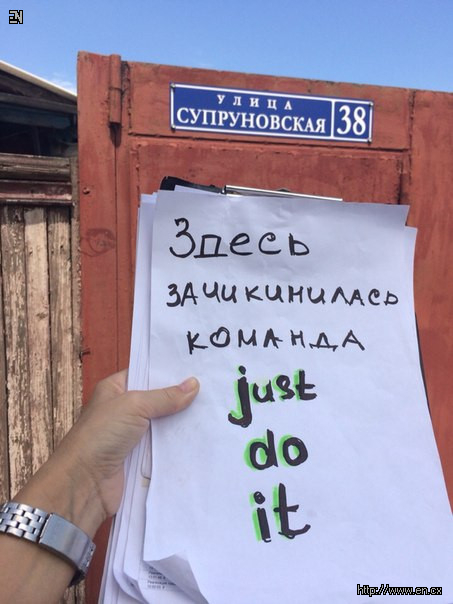 EN
УЛИЦА
СУПРУНОВСКАЯ 38
Здесь
зачикинилась
команда
just
do
it
http://www.en.cx